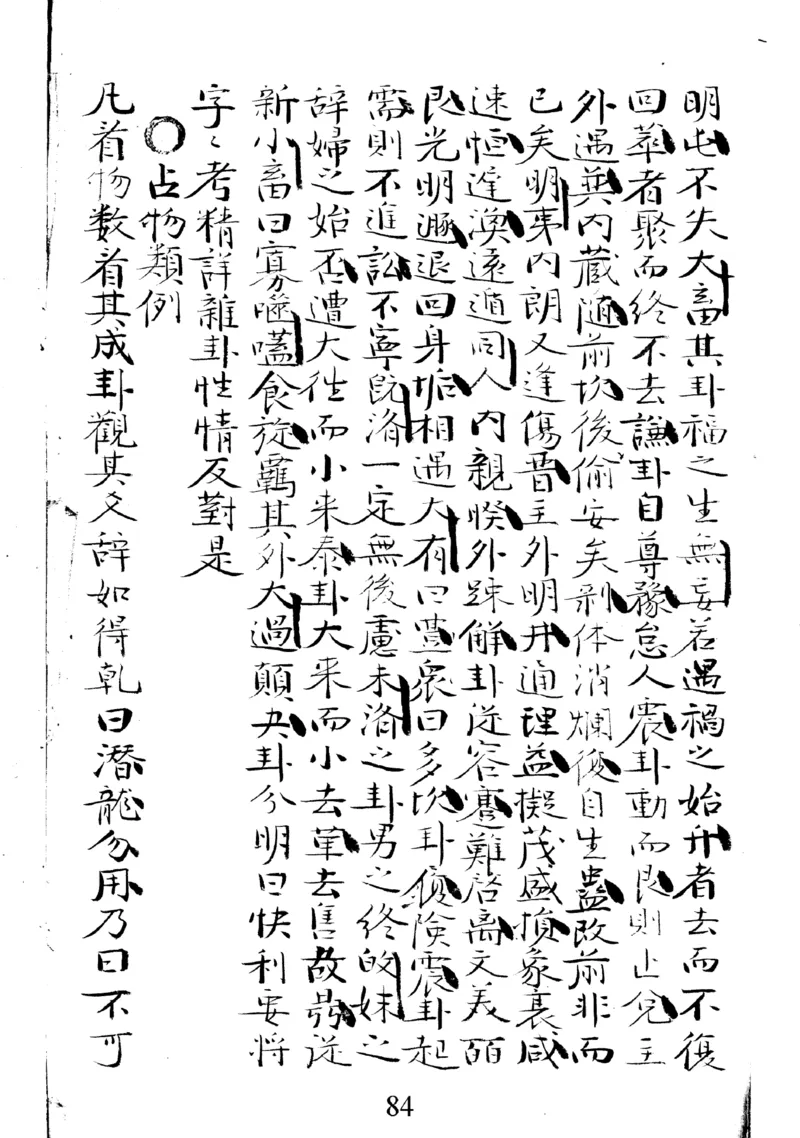 明屯不失大畜其卦福之生無妄若遇禍之始升者去而不復
回萃者聚而終不去謙卦自尊豫怠人震卦動而艮則止兌主
外遇巽內蔵随前坎後偷安矣剝体消爛復自生蠱改前非而
已矣明夷內朗又逢傷晉主外明井通理益擬茂盛損象衰咸
速恒逢渙遠遁同人內親睽外踈觧卦從容蹇難啓离文美
艮光明遯退囬身垢相遇大有曰豊衆曰多坎卦復険震卦起
需則不進訟不寧旣済一定無後慮未済之卦男之终皈妹之
辞婦之始否遭大徃而小来泰卦大来而小去革去售故鼎從
新小畜曰寡噬嗑食旋羈其外大過顛夬卦分明曰快利要将
字〻考精詳雜卦性情反對是
〇占物類例
凢着物数着其成卦觀其爻辞如得乾曰潛龍勿用乃曰不可
84